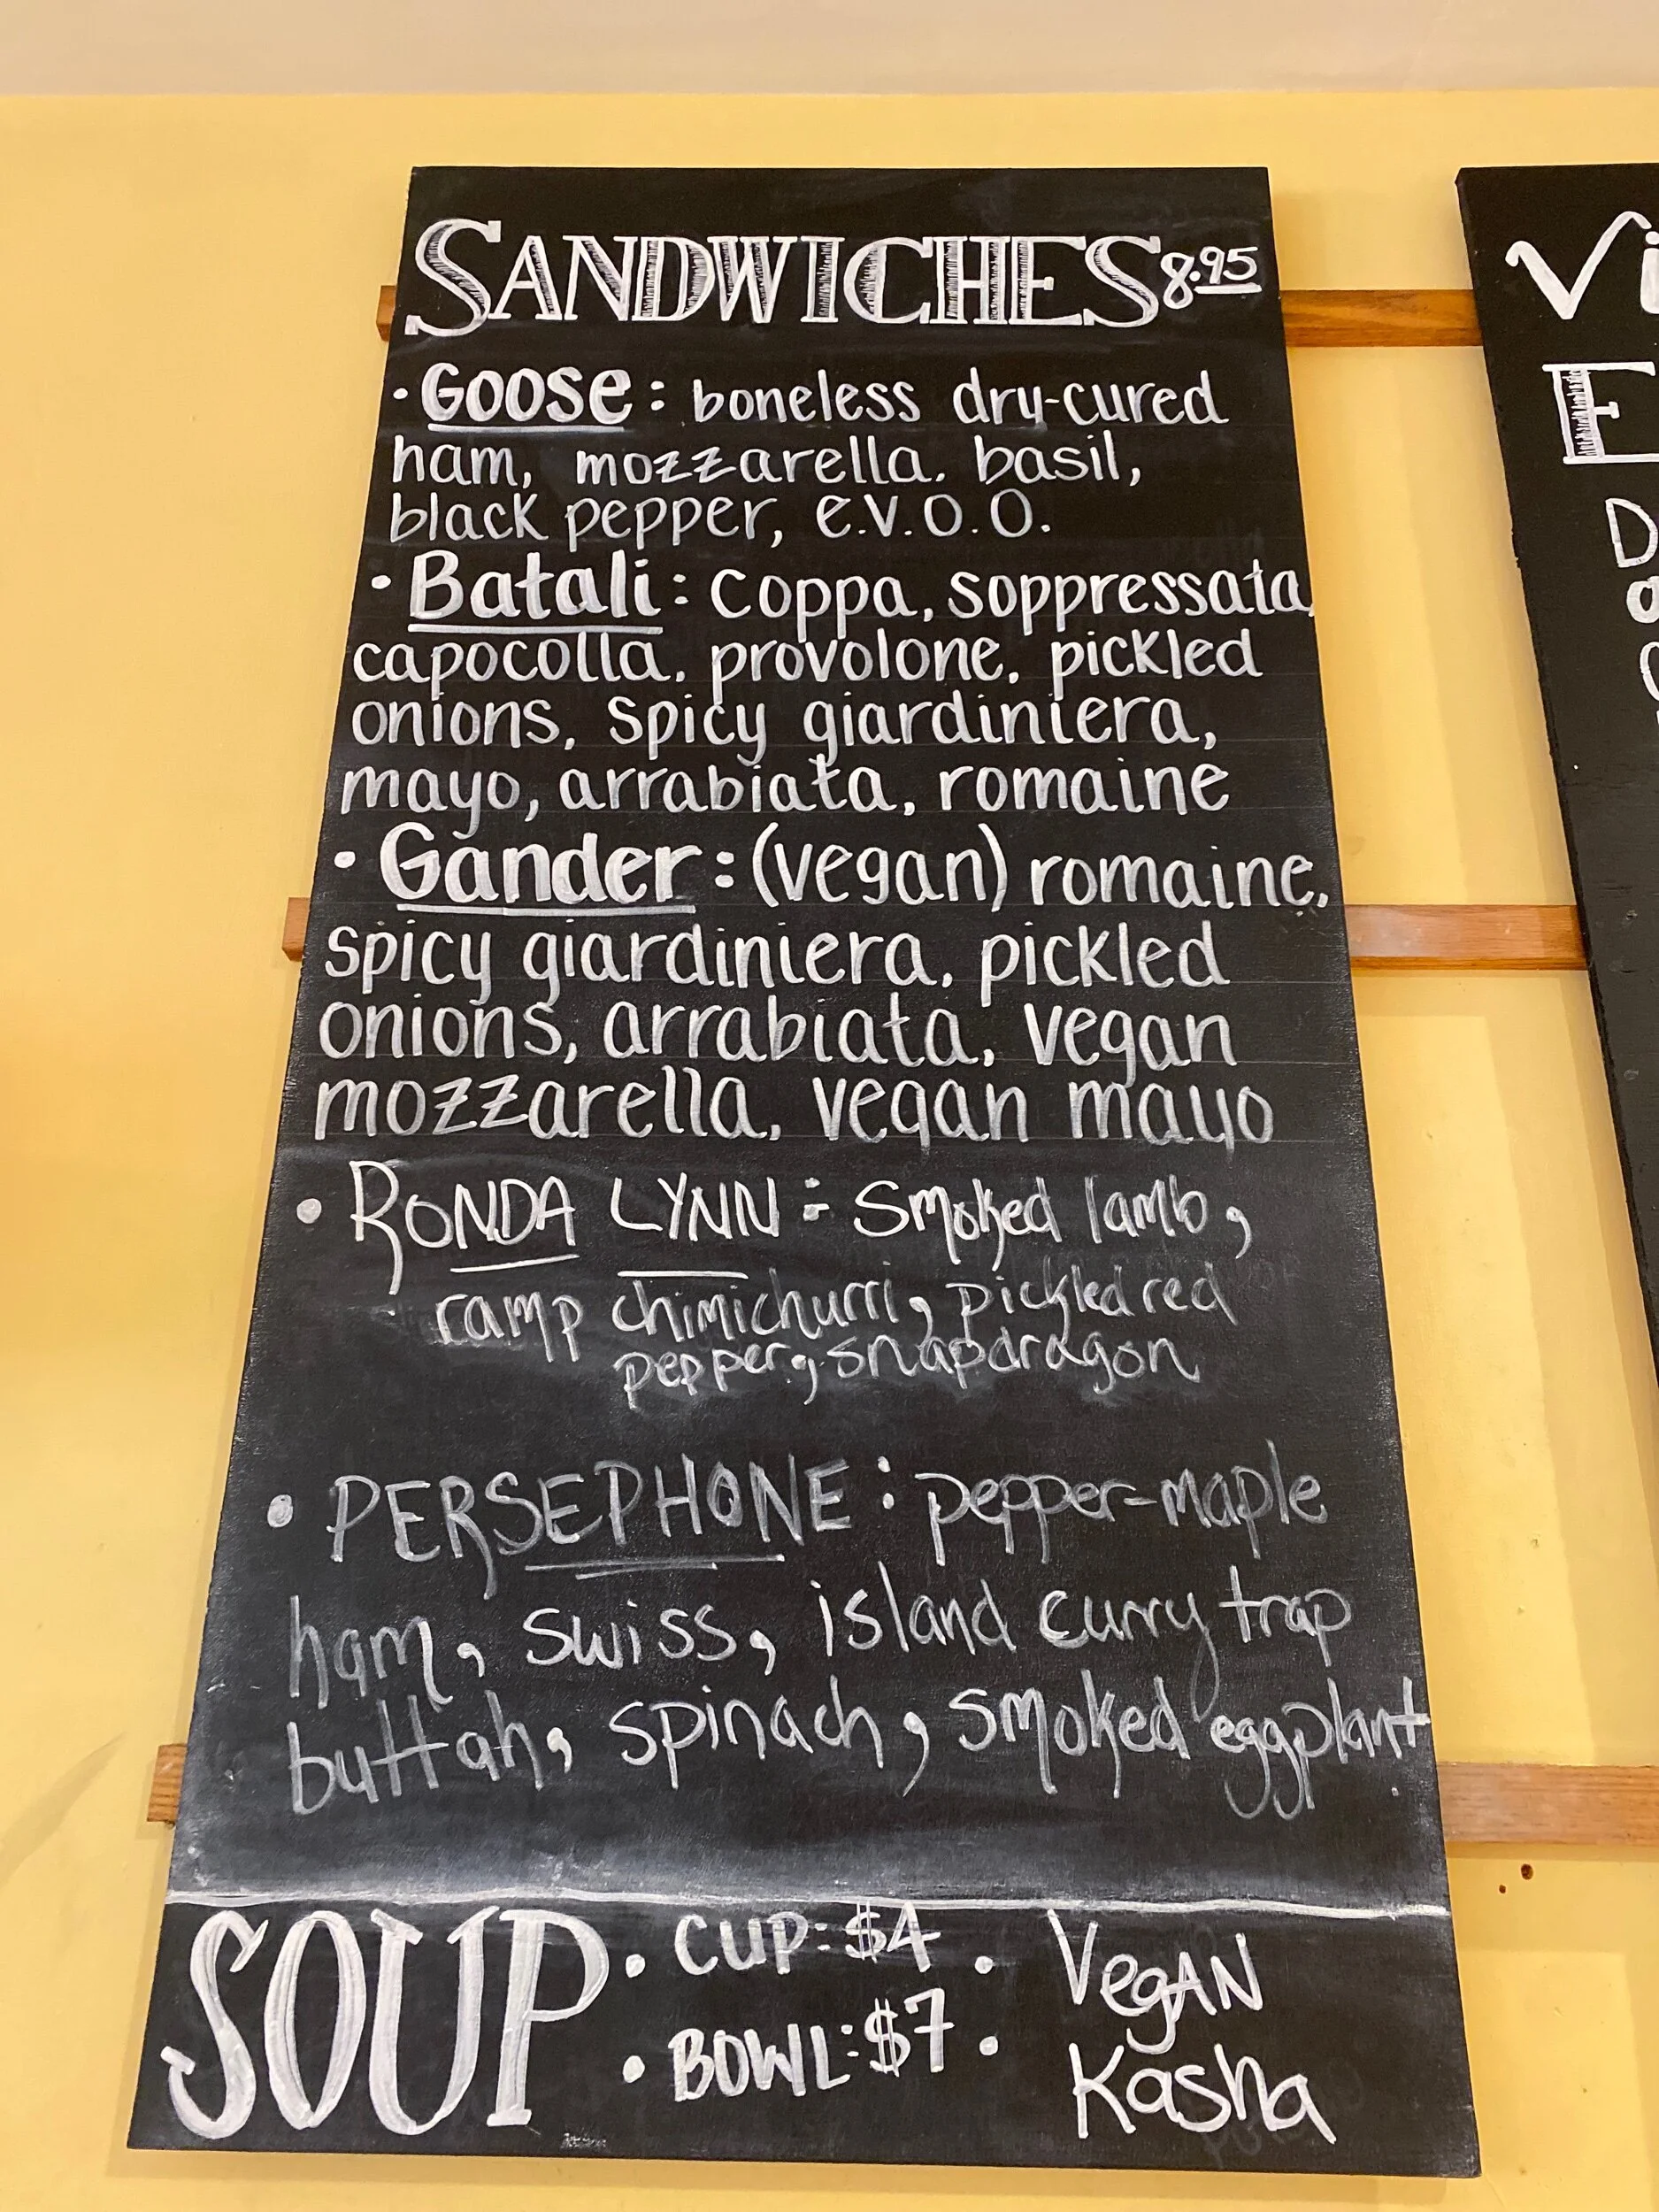 SANDWICHES 8.95
• Goose: boneless dry-cured
ham, mozzarella. basil,
black pepper, e.v.o.o.
• Batali: coppa, soppressata,
capocolla, provolone, pickled
onions, spicy giardiniera,
mayo, arrabiata, romaine
• Gander: (vegan) romaine,
spicy giardiniera, pickled
onions, arrabiata, vegan
mozzarella, vegan mayo
• RONDA LYNN: Smoked lamb,
ramp chimichurri, pickled red
pepper, snapdragon
• PERSEPHONE: pepper-maple
ham, swiss, island curry trap
buttah, spinach, smoked eggplant
SOUP • CUP: $4 • Vegan
• BOWL: $7 • Kasha
Vi
E
D